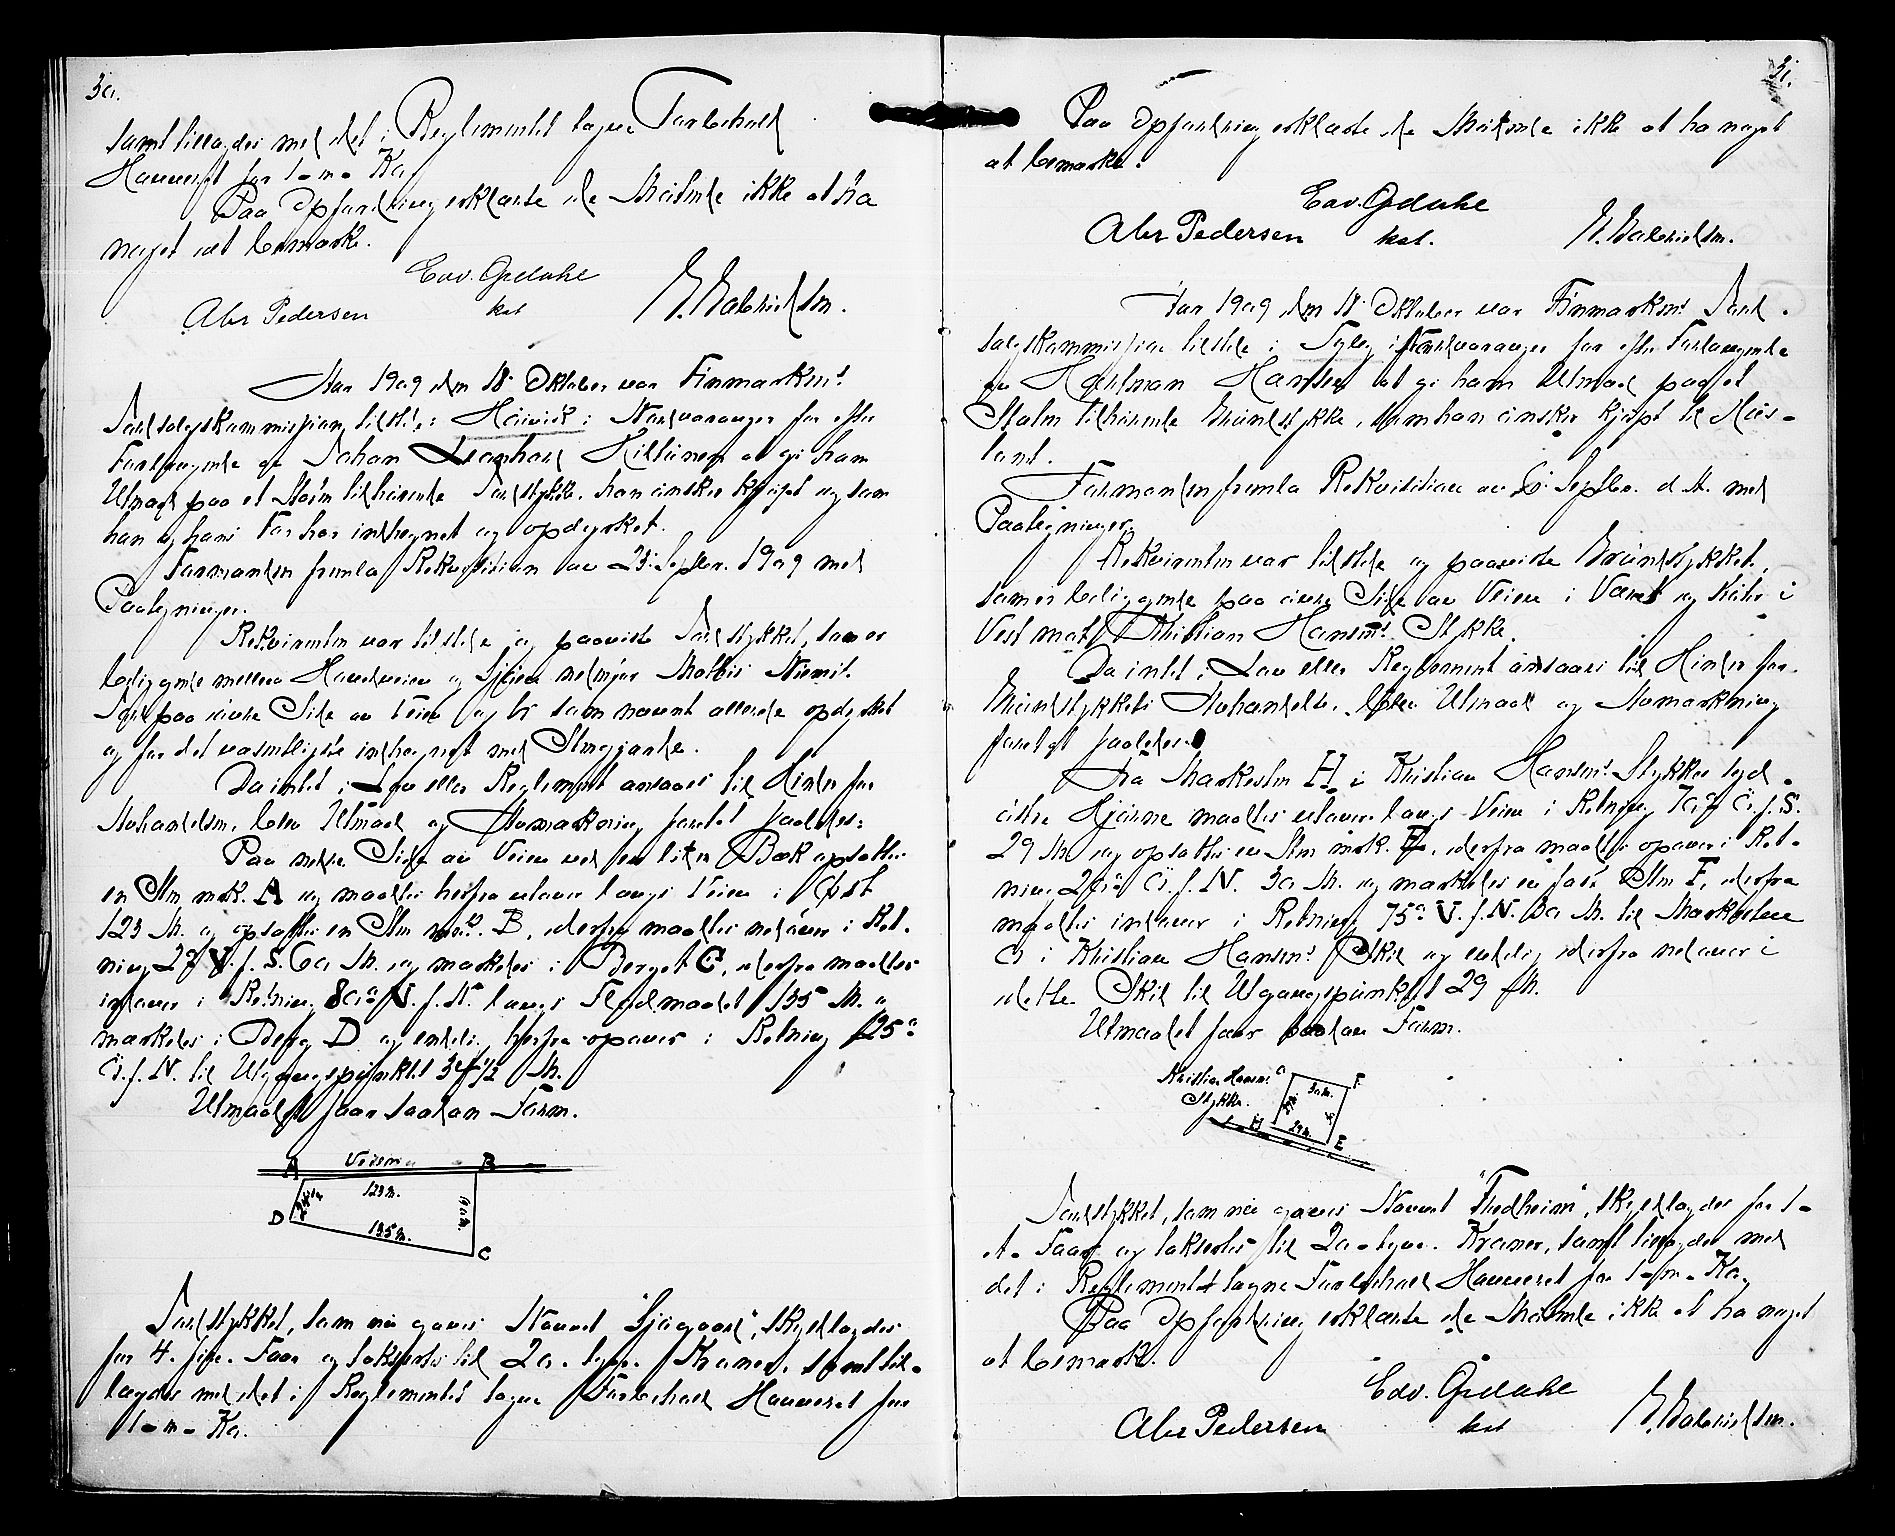 30.
samt tillagdes med det i Reglementet tagne Forbehold
Havneret for 1 - en - Ko.
Paa Opfordring erklærte de Mødende ikke at ha
noget at bemærke.
Edv. Gjedahl
Abr Pedersen kst
Aar 1909 den 18. Oktober var Finmarkens
Jordsalgskommission tilstede i Høivik i Nordvaranger for efter
Forlangende av Johan Leonhard Hiltunen at gi ham
Utmaal paa et Staten tilhørende Jordstykke, han ønsker kjøpt og som
han og hans Far har indhegnet og opdyrket.
Formanden fremla Rekvisition av 23. Septbr. 1909 med
Paategninger.
Rekvirenten var tilstede og paaviste Jordstykket, som er
beliggende mellem Hovedveien og Sjøen nedenfor Mattis Niemis
Jord paa øvre Side av Veien og er som nævnt allerede opdyrket
og for det væsentligste indhegnet med Stengjærde.
Da intet i Lov eller Reglement ansaaes til Hinder for
Avhændelsen, blev Utmaal og Avmærkning foretat saaledes:
Paa nedre Side av Veien ved en liten Bæk opsattes
en Sten mrk. A og maaltes herfra utover langs Veien i Øst
123 M. og opsattes en Sten mrk. B, derfra maaltes nedover i Ret-
ning 27° V. f. S. 60 M. og merkedes i Berget C, derfra maaltes
indover i Retning 80° N. f. V. langs Flodmaalet 135 M. og
merkedes i Berg D og endelig herfra opover i Retning 25°
Ö. f. N. til Utgangspunktet 34 1/2 M.
Utmaalet saar saadan Form.
A Veien B
123 m.
D 135 m. C
Jordstykket, som nu gaves Navnet "Sjøgaard", skyldlagdes
for 4 - fire - Faar og taksertes til 20 - tyve - Kroner, samt til-
lagdes med det i Reglementet tagne Forbehold Havneret for
1 - en - Ko.
31.
Paa Opfordring erklærte de Mødende ikke at ha noget
at bemærke.
Edv. Gjedahl
Abr Pedersen kst.
Aar 1909 den 18. Oktober var Finmarkens Jord-
salgskommission tilstede i Nordvaranger for efter Forlangende
av Hansen at gi ham Utmaal paa et
Staten tilhørende Grundstykke, som han ønsker kjøpt til Hus-
tomt.
Formanden fremla Rekvisition av 6. Septbr. d. A. med
Paategninger.
Rekvirenten var tilstede og paaviste Grundstykket,
som er beliggende paa øvre Side av Veien i Været og støter i
Vest mot Kristian Hansens Stykke.
Da intet i Lov eller Reglement ansaaes til Hinder for
Grundstykkets Avhændelse, blev Utmaal og Avmærkning
foretat saaledes:
Fra Merkesten H i Kristian Hansens Stykkes syd-
østre Hjørne maaltes utover langs Veien i Retning 70° Ö. f. S.
29 M. og opsattes en Sten mrk. E, derfra maaltes opover i Ret-
ning 20° Ö. f. N. 30 M. og merkedes en fast Sten F, derfra
maaltes indover i Retning 75° V. f. N. 30 M. til Merkesten
G i Kristian Hansens Skil og endelig derfra nedover i
dette Skil til Utgangspunktet 29 M.
Utmaalet faar saadan Form.
Kristian Hansens G F
Stykke. 30 m.
H 29 m. E
Jordstykket, som nu gaves Navnet "Fredheim", skyldlagdes for 1 -
et - Faar og taksertes til 20 - tyve - Kroner, samt tillagdes med
det i Reglementet tagne Forbehold Havneret for 1 - en - Ko.
Paa Opfordring erklærte de Mødende ikke at ha noget
at bemærke.
Edv. Gjedahl
Abr Pedersen kst